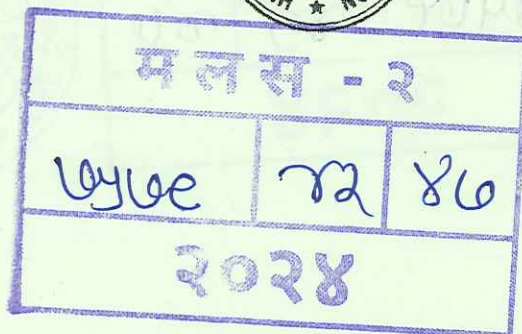 मलस - २
७५७९ ४७
२०२४